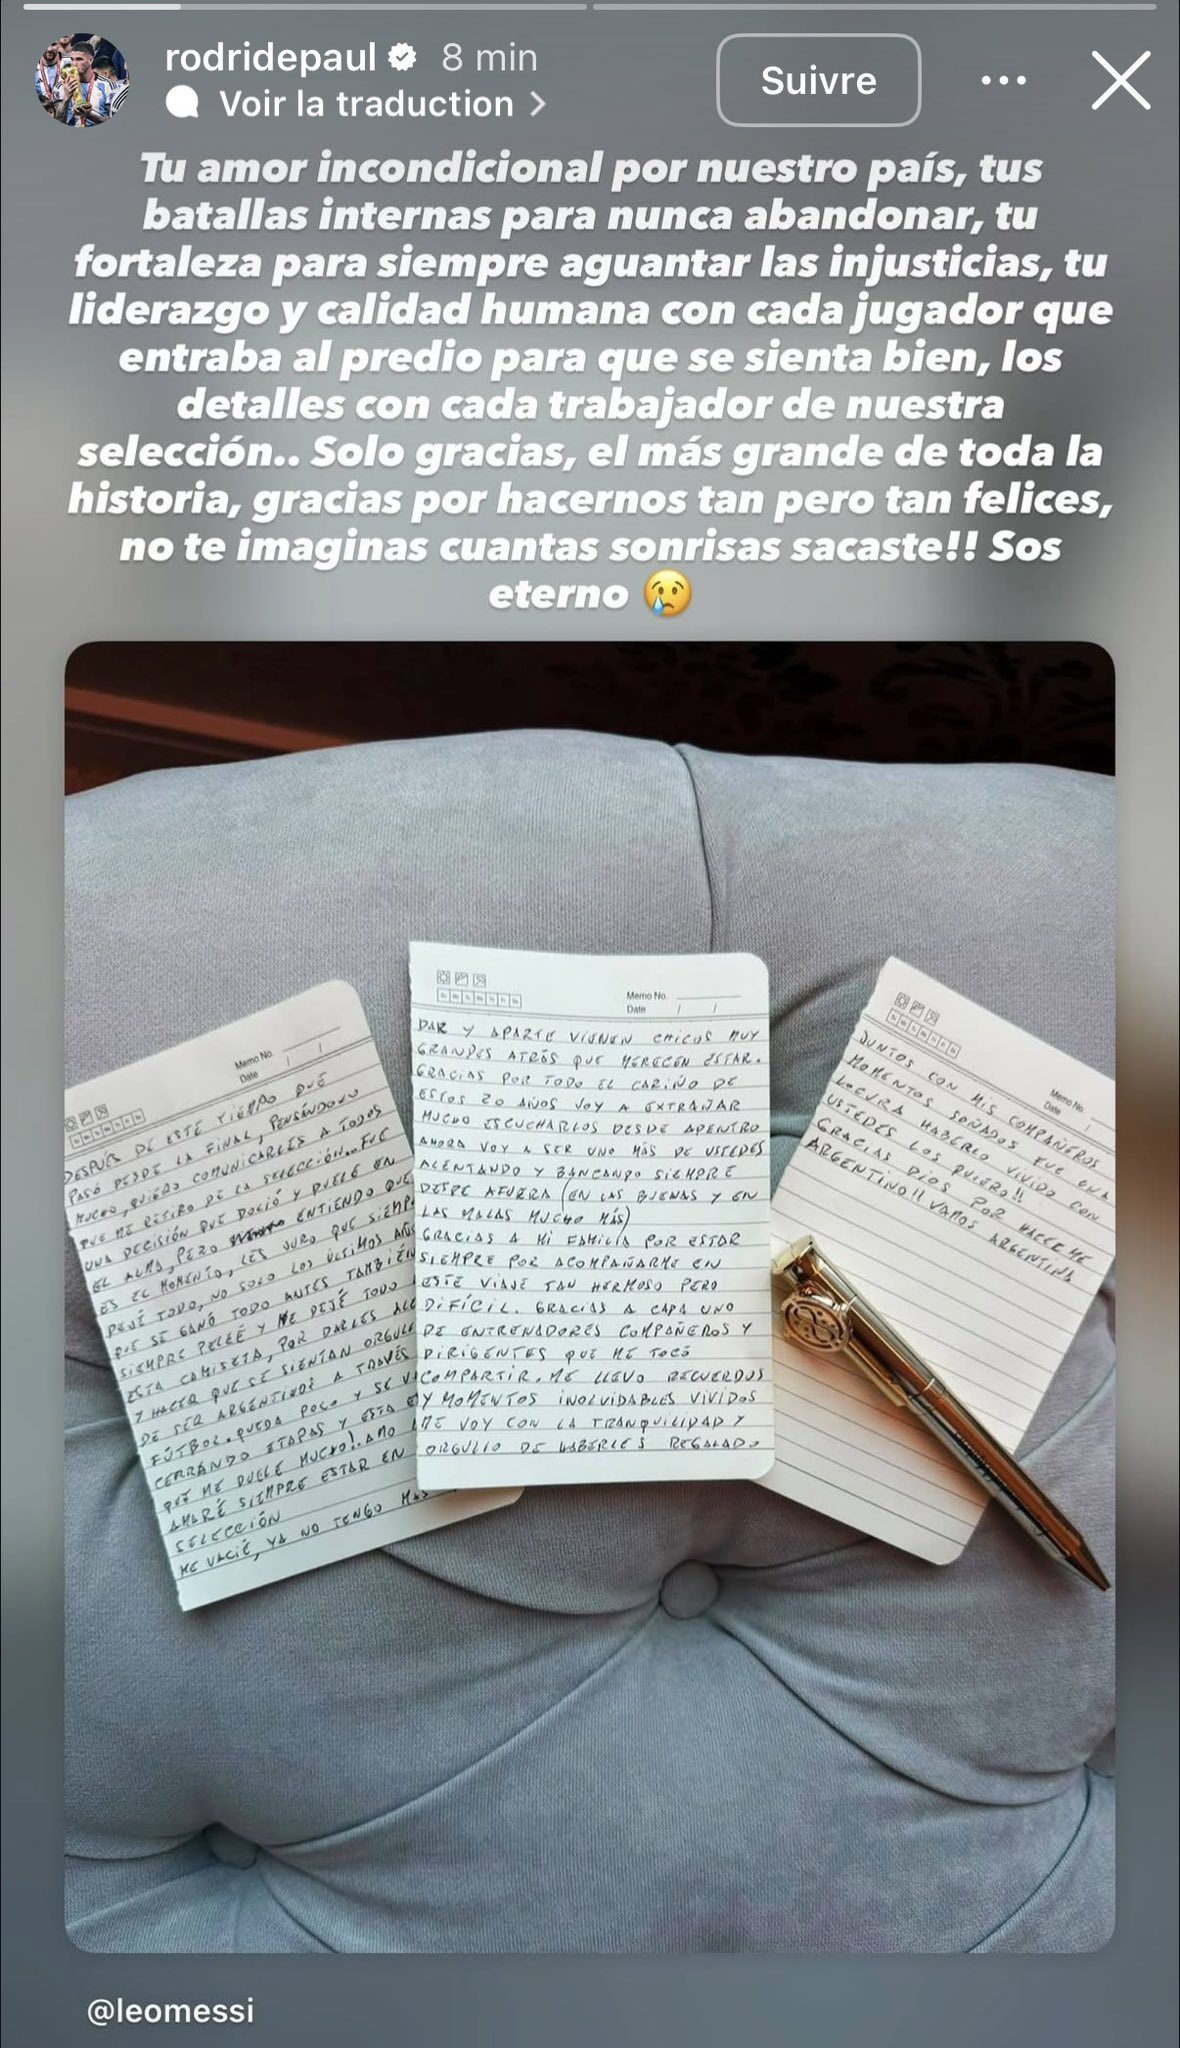 rodridepaul 8 min
Voir la traduction
Suivre
Tu amor incondicional por nuestro país, tus
batallas internas para nunca abandonar, tu
fortaleza para siempre aguantar las injusticias, tu
liderazgo y calidad humana con cada jugador que
entraba al predio para que se sienta bien, los
detalles con cada trabajador de nuestra
selección.. Solo gracias, el más grande de toda la
historia, gracias por hacernos tan pero tan felices,
no te imaginas cuantas sonrisas sacaste!! Sos
eterno 😢
Memo No.
Date / /
DESPUÉS DE ESTE TIEMPO QUE
PASÓ DESDE LA FINAL, PENSÁNDOLO
MUCHO, QUIERO COMUNICARLES A TODOS
QUE ME RETIRO DE LA SELECCIÓN... FUE
UNA DECISIÓN QUE DOLIÓ Y DUELE EN
EL ALMA, PERO ENTIENDO QUE
ES EL MOMENTO, LES JURO QUE SIEMPRE
DEJÉ TODO, NO SOLO LOS ÚLTIMOS AÑOS
QUE SE GANÓ TODO ANTES TAMBIÉN
SIEMPRE PELEÉ Y ME DEJÉ TODO
ESTA CAMISETA, POR DARLES
Y HACER QUE SE SIENTAN
DE SER ARGENTINOS A TRAVÉS
FÚTBOL. QUEDA POCO Y SE
CERRANDO ETAPAS Y ESTA
QUE ME DUELE MUCHO!. AMO
AMARÉ SIEMPRE ESTAR EN
SELECCIÓN
ME VACIÉ, YA NO TENGO MÁS
Memo No.
Date / /
DAR Y APARTE VIENEN CHICOS MUY
GRANDES ATRÁS QUE MERECEN ESTAR.
GRACIAS POR TODO EL CARIÑO DE
ESTOS 20 AÑOS VOY A EXTRAÑAR
MUCHO ESCUCHARLOS DESDE ADENTRO
AHORA VOY A SER UNO MÁS DE USTEDES
ALENTANDO Y BANCANDO SIEMPRE
DESDE AFUERA (EN LAS BUENAS Y EN
LAS MALAS MUCHO MÁS)
GRACIAS A MI FAMILIA POR ESTAR
SIEMPRE POR ACOMPAÑARME EN
ESTE VIAJE TAN HERMOSO PERO
DIFÍCIL. GRACIAS A CADA UNO
DE ENTRENADORES COMPAÑEROS Y
DIRIGENTES QUE ME TOCÓ
COMPARTIR. ME LLEVO RECUERDOS
Y MOMENTOS INOLVIDABLES VIVIDOS
ME VOY CON LA TRANQUILIDAD Y
ORGULLO DE HABERLES REGALADO
Memo No.
Date /
JUNTOS CON MIS COMPAÑEROS
MOMENTOS SOÑADOS FUE UNA
LOCURA HABERLO VIVIDO CON
USTEDES LOS QUIERO!!
GRACIAS DIOS POR HACERME
ARGENTINO!! VAMOS ARGENTINA
@leomessi